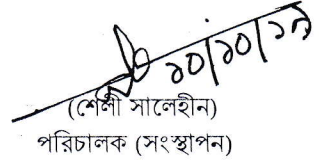 ১০/১০/১৯
(শেলী সালেহীন)
পরিচালক (সংস্থাপন)